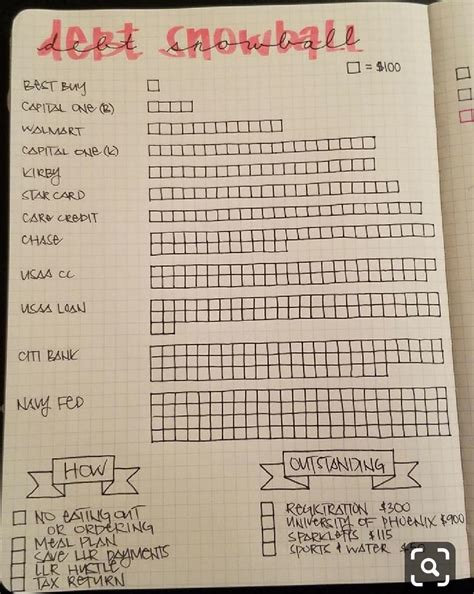 debt snowball
= $100
BEST BUY
CAPITAL ONE (B)
WALMART
CAPITAL ONE (K)
KIRBY
STAR CARD
CARE CREDIT
CHASE
USAA CC
USAA LOAN
CITI BANK
NAVY FED
HOW
NO EATING OUT
OR ORDERING
MEAL PLAN
SAVE LLR PAYMENTS
LLR HUSTLE
TAX RETURN
OUTSTANDING
REGISTRATION $300
UNIVERSITY OF PHOENIX $900
SPARKLETTS $115
SPORTS & WATER